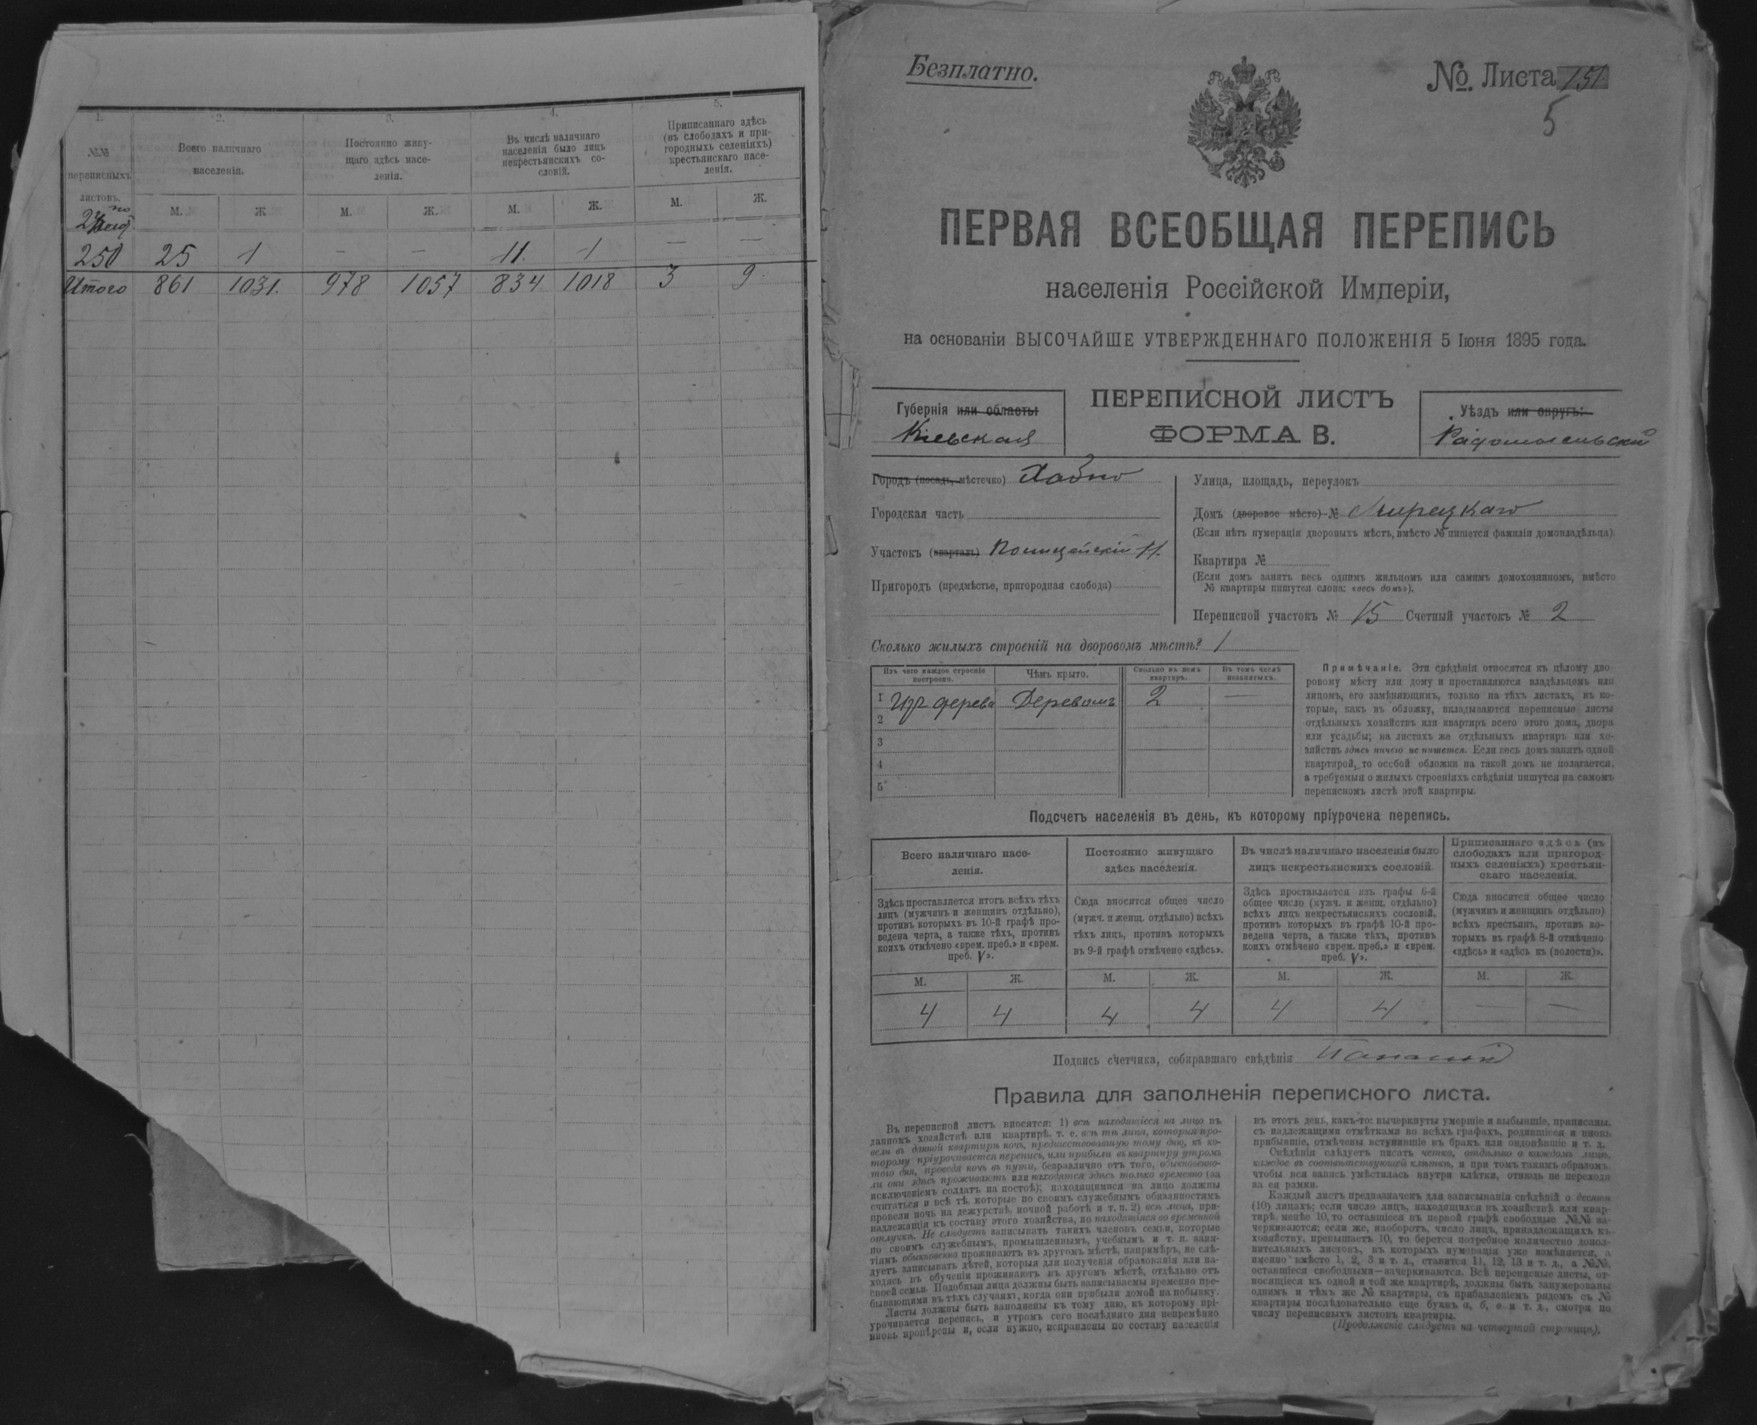 1.
2.
3.
4.
5.
№№
переписныхъ
листовъ.
Всего наличнаго
населенія.
Постоянно живу-
щаго здѣсь насе-
ленія.
Въ числѣ налачнаго
населенія было лицъ
некрестьянскихъ со-
словій.
Приписаннаго здѣсь
(въ слободахъ и при-
городныхъ селеніяхъ)
крестьянскаго насе-
ленія.
М. Ж М. Ж. М. Ж. М. Ж.
250 25 1 — — 11. 1 — —
Итого 861 1031. 978 1057 834 1018 3 9.
Безплатно.
№. Листа 151
5
ПЕРВАЯ ВСЕОБЩАЯ ПЕРЕПИСЬ
населенія Россійской Имперіи,
на основаніи ВЫСОЧАЙШЕ УТВЕРЖДЕННАГО ПОЛОЖЕНІЯ 5 Іюня 1895 года.
Губернія или область:
Кіевская
ПЕРЕПИСНОЙ ЛИСТЪ
ФОРМА В.
Уѣздъ или округъ:
Радомысльскій
Городъ (посадъ, мѣстечко) Хабно
Городская часть
Участокъ (кварталъ) Полицейскій
Пригородъ (предмѣстье, пригородная слобода)
Улица, площадь, переулокъ
Домъ (дворовое мѣсто) №
(Если нѣтъ нумераціи дворовыхъ мѣстъ, вмѣсто № пишется фамилія домовладѣльца)
Квартира №
(Если домъ занятъ весь однимъ жильцомъ или самимъ домохозяиномъ, вмѣсто
№ квартиры пишутся слова: «весь домъ»).
Переписной участокъ № 15 Счетный участокъ № 2
Сколько жилыхъ строеній на дворовомъ мѣстѣ? 1
Изъ чего каждое строеніе
построено.
Чѣмъ крыто.
Сколько въ немъ
квартиръ.
Въ томъ числѣ
незанятыхъ.
1 Изъ дерева Деревомъ 2 —
2
3
4
5
Примѣчаніе. Эти свѣдѣнія относятся къ цѣлому дво-
ровому мѣсту или дому и проставляются владѣльцемъ или
лицомъ, его замѣняющимъ, только на тѣхъ листахъ, въ ко-
торые, какъ въ обложку, вкладываются переписные листы
отдѣльныхъ хозяйствъ или квартиръ всего этого дома, двора
или усадьбы; на листахъ же отдѣльныхъ квартиръ или хо-
зяйствъ здѣсь ничего не пишется. Если весь домъ занятъ одной
квартирой, то особой обложки на такой домъ не полагается,
а требуемыя о жилыхъ строеніяхъ свѣдѣнія пишутся на самомъ
переписномъ листѣ этой квартиры.
Подсчетъ населенія въ день, къ которому пріурочена перепись.
Всего наличнаго насе-
ленія.
Здѣсь проставляется итогъ всѣхъ тѣхъ
лицъ (мужчинъ и женщинъ отдѣльно),
противъ которыхъ въ 10-й графѣ про-
ведена черта, а также тѣхъ, противъ
коихъ отмѣчено «врем. преб.» и «врем.
преб. V».
Постоянно живущаго
здѣсь населенія.
Сюда вносится общее число
(мужч. и женщ. отдѣльно) всѣхъ
тѣхъ лицъ, противъ которыхъ
въ 9-й графѣ отмѣчено «здѣсь».
Въ числѣ наличнаго населенія было
лицъ некрестьянскихъ сословій.
Здѣсь проставляется изъ графы 6-й
общее число (мужч. и женщ. отдѣльно)
всѣхъ лицъ некрестьянскихъ сословій,
противъ которыхъ въ графѣ 10-й про-
ведена черта, а также тѣхъ, противъ
коихъ отмѣчено «врем. преб.» и «врем.
преб. V».
Приписаннаго здѣсь (въ
слободахъ или пригород-
ныхъ селеніяхъ) крестьян-
скаго населенія.
Сюда вносится общее число
(мужчинъ и женщинъ отдѣльно)
всѣхъ крестьян, противъ ко-
торыхъ въ графѣ 8-й отмѣчено
«здѣсь» и «здѣсь къ (волости)».
М. Ж. М. Ж. М. Ж. М. Ж.
4 4 4 4 4 4 — —
Подпись счетчика, собиравшаго свѣдѣнія
Правила для заполненія переписного листа.
Въ переписной листъ вносятся: 1) всѣ находящіеся на лицо въ
данномъ хозяйствѣ или квартирѣ, т. е. всѣ тѣ лица, которыя про-
вели въ данной квартирѣ ночь, предшествовавшую тому дню, къ ко-
торому пріурочивается перепись, или прибыли въ квартиру утромъ
того дня, проведя ночь въ пути, безразлично отъ того, обыкновенно-
ли они здѣсь проживаютъ или находятся здѣсь только временно (за
исключеніемъ солдатъ на постоѣ); находящимися на лицо должны
считаться и всѣ тѣ, которые по своимъ служебнымъ обязанностямъ
провели ночь на дежурствѣ, ночной работѣ и т. п. 2) всѣ лица, при-
надлежащія къ составу этого хозяйства, но находящіяся во временной
отлучкѣ. Не слѣдуетъ записывать такихъ членовъ семьи, которые
по своимъ служебнымъ, промышленнымъ, учебнымъ и т. п. заня-
тіямъ обыкновенно проживаютъ въ другомъ мѣстѣ, напримѣръ, не слѣ-
дуетъ записывать дѣтей, которыя для полученія образованія или на-
ходясь въ обученіи проживаютъ въ другомъ мѣстѣ, отдѣльно отъ
своей семьи. Подобныя лица должны быть записываемы временно пре-
бывающими въ тѣхъ случаяхъ, когда они прибыли домой на побывку.
Листы должны быть заполнены къ тому дню, къ которому прі-
урочивается перепись, и утромъ сего послѣдняго дня непремѣнно
вновь провѣрены и, если нужно, исправлены по составу населенія
въ этотъ день, какъ-то: вычеркнуты умершіе и выбывшіе, приписаны,
съ надлежащими отмѣтками во всѣхъ графахъ, родившіеся и вновь
прибывшіе, отмѣчены вступившіе въ бракъ или овдовѣвшіе и т. д.
Свѣдѣнія слѣдуетъ писать четко, отдѣльно о каждомъ лицѣ,
каждое въ соотвѣтствующей клѣткѣ, и при томъ такимъ образомъ,
чтобы вся запись умѣстилась внутри клѣтки, отнюдь не переходя
за ея рамки.
Каждый листъ предназначенъ для записыванія свѣдѣній о десяти
(10) лицахъ; если число лицъ, находящихся въ хозяйствѣ или квар-
тирѣ, менѣе 10, то оставшіеся въ первой графѣ свободные №№ за-
черкиваются; если же, наоборотъ, число лицъ, принадлежащихъ къ
хозяйству, превышаетъ 10, то берется потребное количество допол-
нительныхъ листовъ, въ которыхъ нумерація уже измѣняется, а
именно вмѣсто 1, 2, 3 и т. д., ставится 11, 12, 13 и т. д., а №№,
оставшіеся свободными—зачеркиваются. Всѣ переписные листы, от-
носящіеся къ одной и той же квартирѣ, должны быть занумерованы
однимъ и тѣмъ же № квартиры, съ прибавленіемъ рядомъ съ №
квартиры послѣдовательно еще буквъ а, б, в и т. д., смотря по
числу переписныхъ листовъ квартиры.
(Продолженіе слѣдуетъ на четвертой страницѣ).